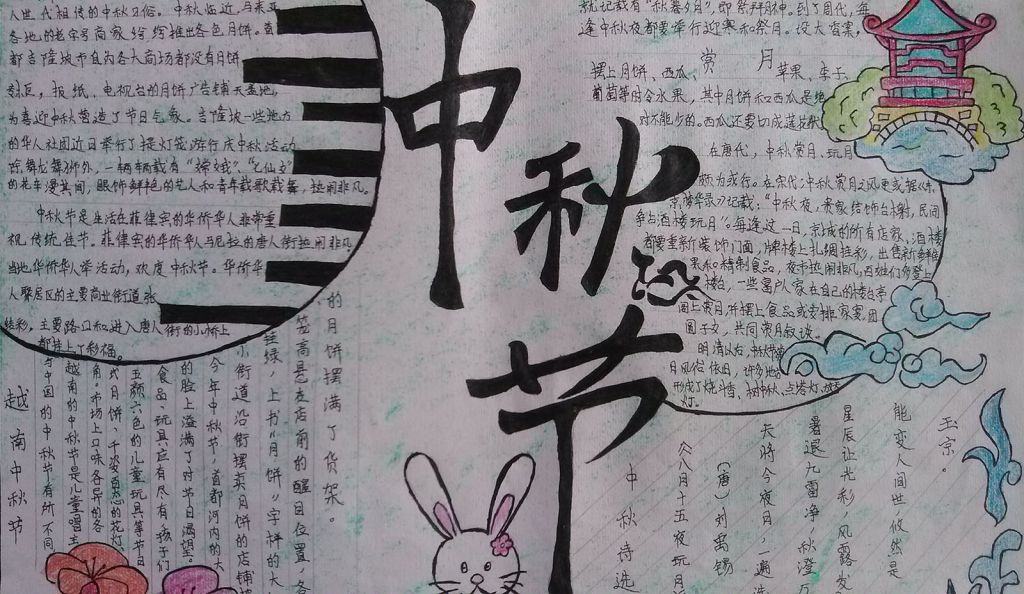 人世代相传的中秋习俗。中秋临近,马来西亚
各地的老字号商家纷纷推出各色月饼。首
都吉隆坡市区内各大商场都设有月饼
专柜,报纸、电视台的月饼广告铺天盖地,
为喜迎中秋营造了节日气氛。吉隆坡一些地方
的华人社团近日举行了提灯笼游行庆中秋活动
除舞龙舞狮外,一辆辆载有"嫦娥""七仙女"
的花车漫其间,眼饰鲜艳的艺人和青年载歌载舞,热闹非凡。
中秋节是生活在菲律宾的华侨华人非常重
视传统佳节。菲律宾的华侨华人马尼拉的唐人街热闹非凡
当地华侨华人举活动,欢度中秋节。华侨华
人聚居区的主要商业街道张
结彩,主要路口和进入唐人街的小桥上
都挂上了彩福。
中
秋
节
就记载有"秋暮夕月",即祭拜月神。到了周代,每
逢中秋夜都要举行迎寒和祭月。设大香案,
赏月
摆上月饼、西瓜、苹果、李子、
葡萄等时令水果,其中月饼和西瓜是绝
对不能少的。西瓜还要切成莲花状
在唐代,中秋赏月、玩月
颇为盛行。在宋代,中秋赏月之风更盛,据《东
京梦华录》记载:"中秋夜,贵家结饰台榭,民间
争占酒楼玩月"。每逢这一日,京城的所有店家、酒楼
都要重新装饰门面,牌楼上扎绸挂彩,出售新鲜佳
果和精制食品,夜市热闹非凡,百姓们多登上
楼台,一些富户人家在自己的楼台亭
阁上赏月,并摆上食品或安排家宴,团
圆子女,共同赏月叙谈。
明清以后,中秋节赏
月风俗依旧,许多地方
形成了烧斗香、树中秋、点塔灯、放天
灯、
的月饼摆满了货架。
笼高悬在店前的醒目位置,各
挂绿,上书"月饼"字样的大
小街道沿街摆卖月饼的店铺
今年中秋节,首都河内的大
的脸上溢满了对节日渴望。
食品、玩具应有尽有,孩子们
五颜六色的儿童玩具等节日
式月饼、千姿百态的花灯、
角。市场上口味各异的各
越南的中秋节是儿童唱主
与中国的中秋节有所不同
越南中秋节
玉京。
能变人间世,攸然是
星辰让光彩,风露发
暑退九霄净,秋澄
天将今夜月,一遍洗
(唐)刘禹锡
《八月十五夜玩月
中秋诗选